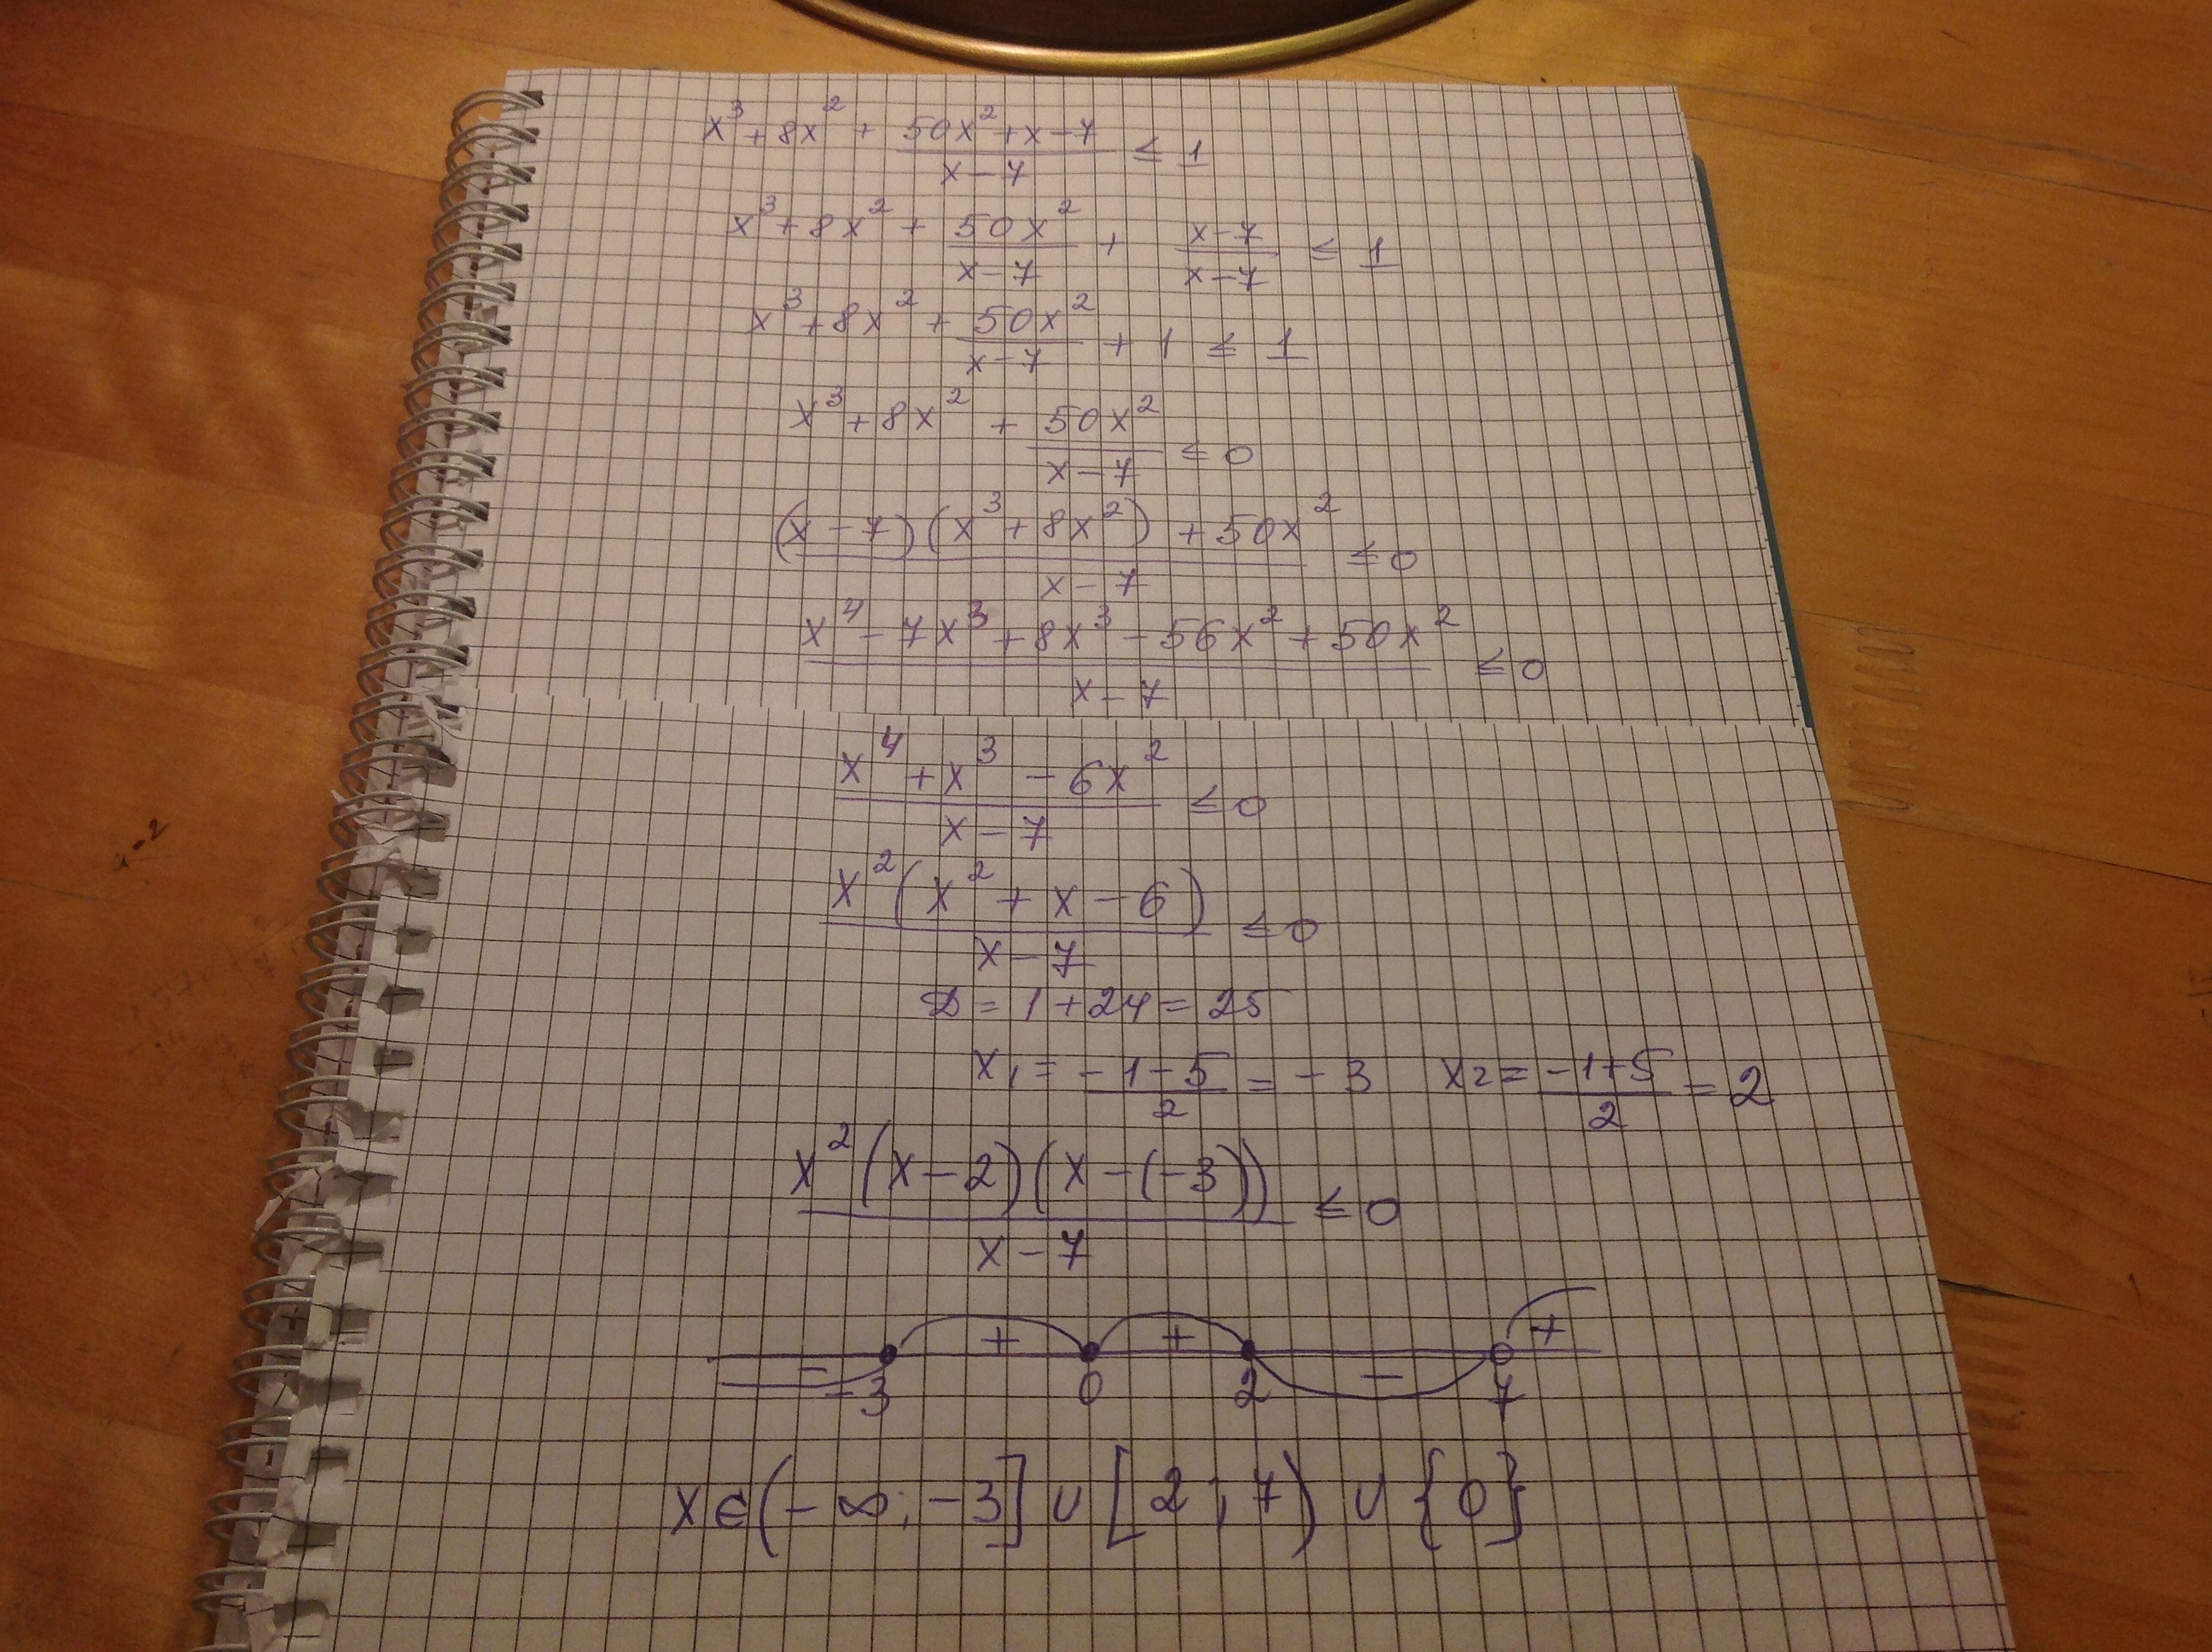 x³ + 8x² + (50x² + x - 7)/(x - 7) ≤ 1
x³ + 8x² + 50x²/(x - 7) + (x - 7)/(x - 7) ≤ 1
x³ + 8x² + 50x²/(x - 7) + 1 ≤ 1
x³ + 8x² + 50x²/(x - 7) ≤ 0
((x - 7)(x³ + 8x²) + 50x²)/(x - 7) ≤ 0
(x⁴ - 7x³ + 8x³ - 56x² + 50x²)/(x - 7) ≤ 0
(x⁴ + x³ - 6x²)/(x - 7) ≤ 0
x²(x² + x - 6)/(x - 7) ≤ 0
D = 1 + 24 = 25
x₁ = (-1 - 5)/2 = -3 x₂ = (-1 + 5)/2 = 2
x²(x - 2)(x - (-3))/(x - 7) ≤ 0
- + + - +
-3 0 2 7
x ∈ (-∞; -3] ∪ [2; 7) ∪ {0}